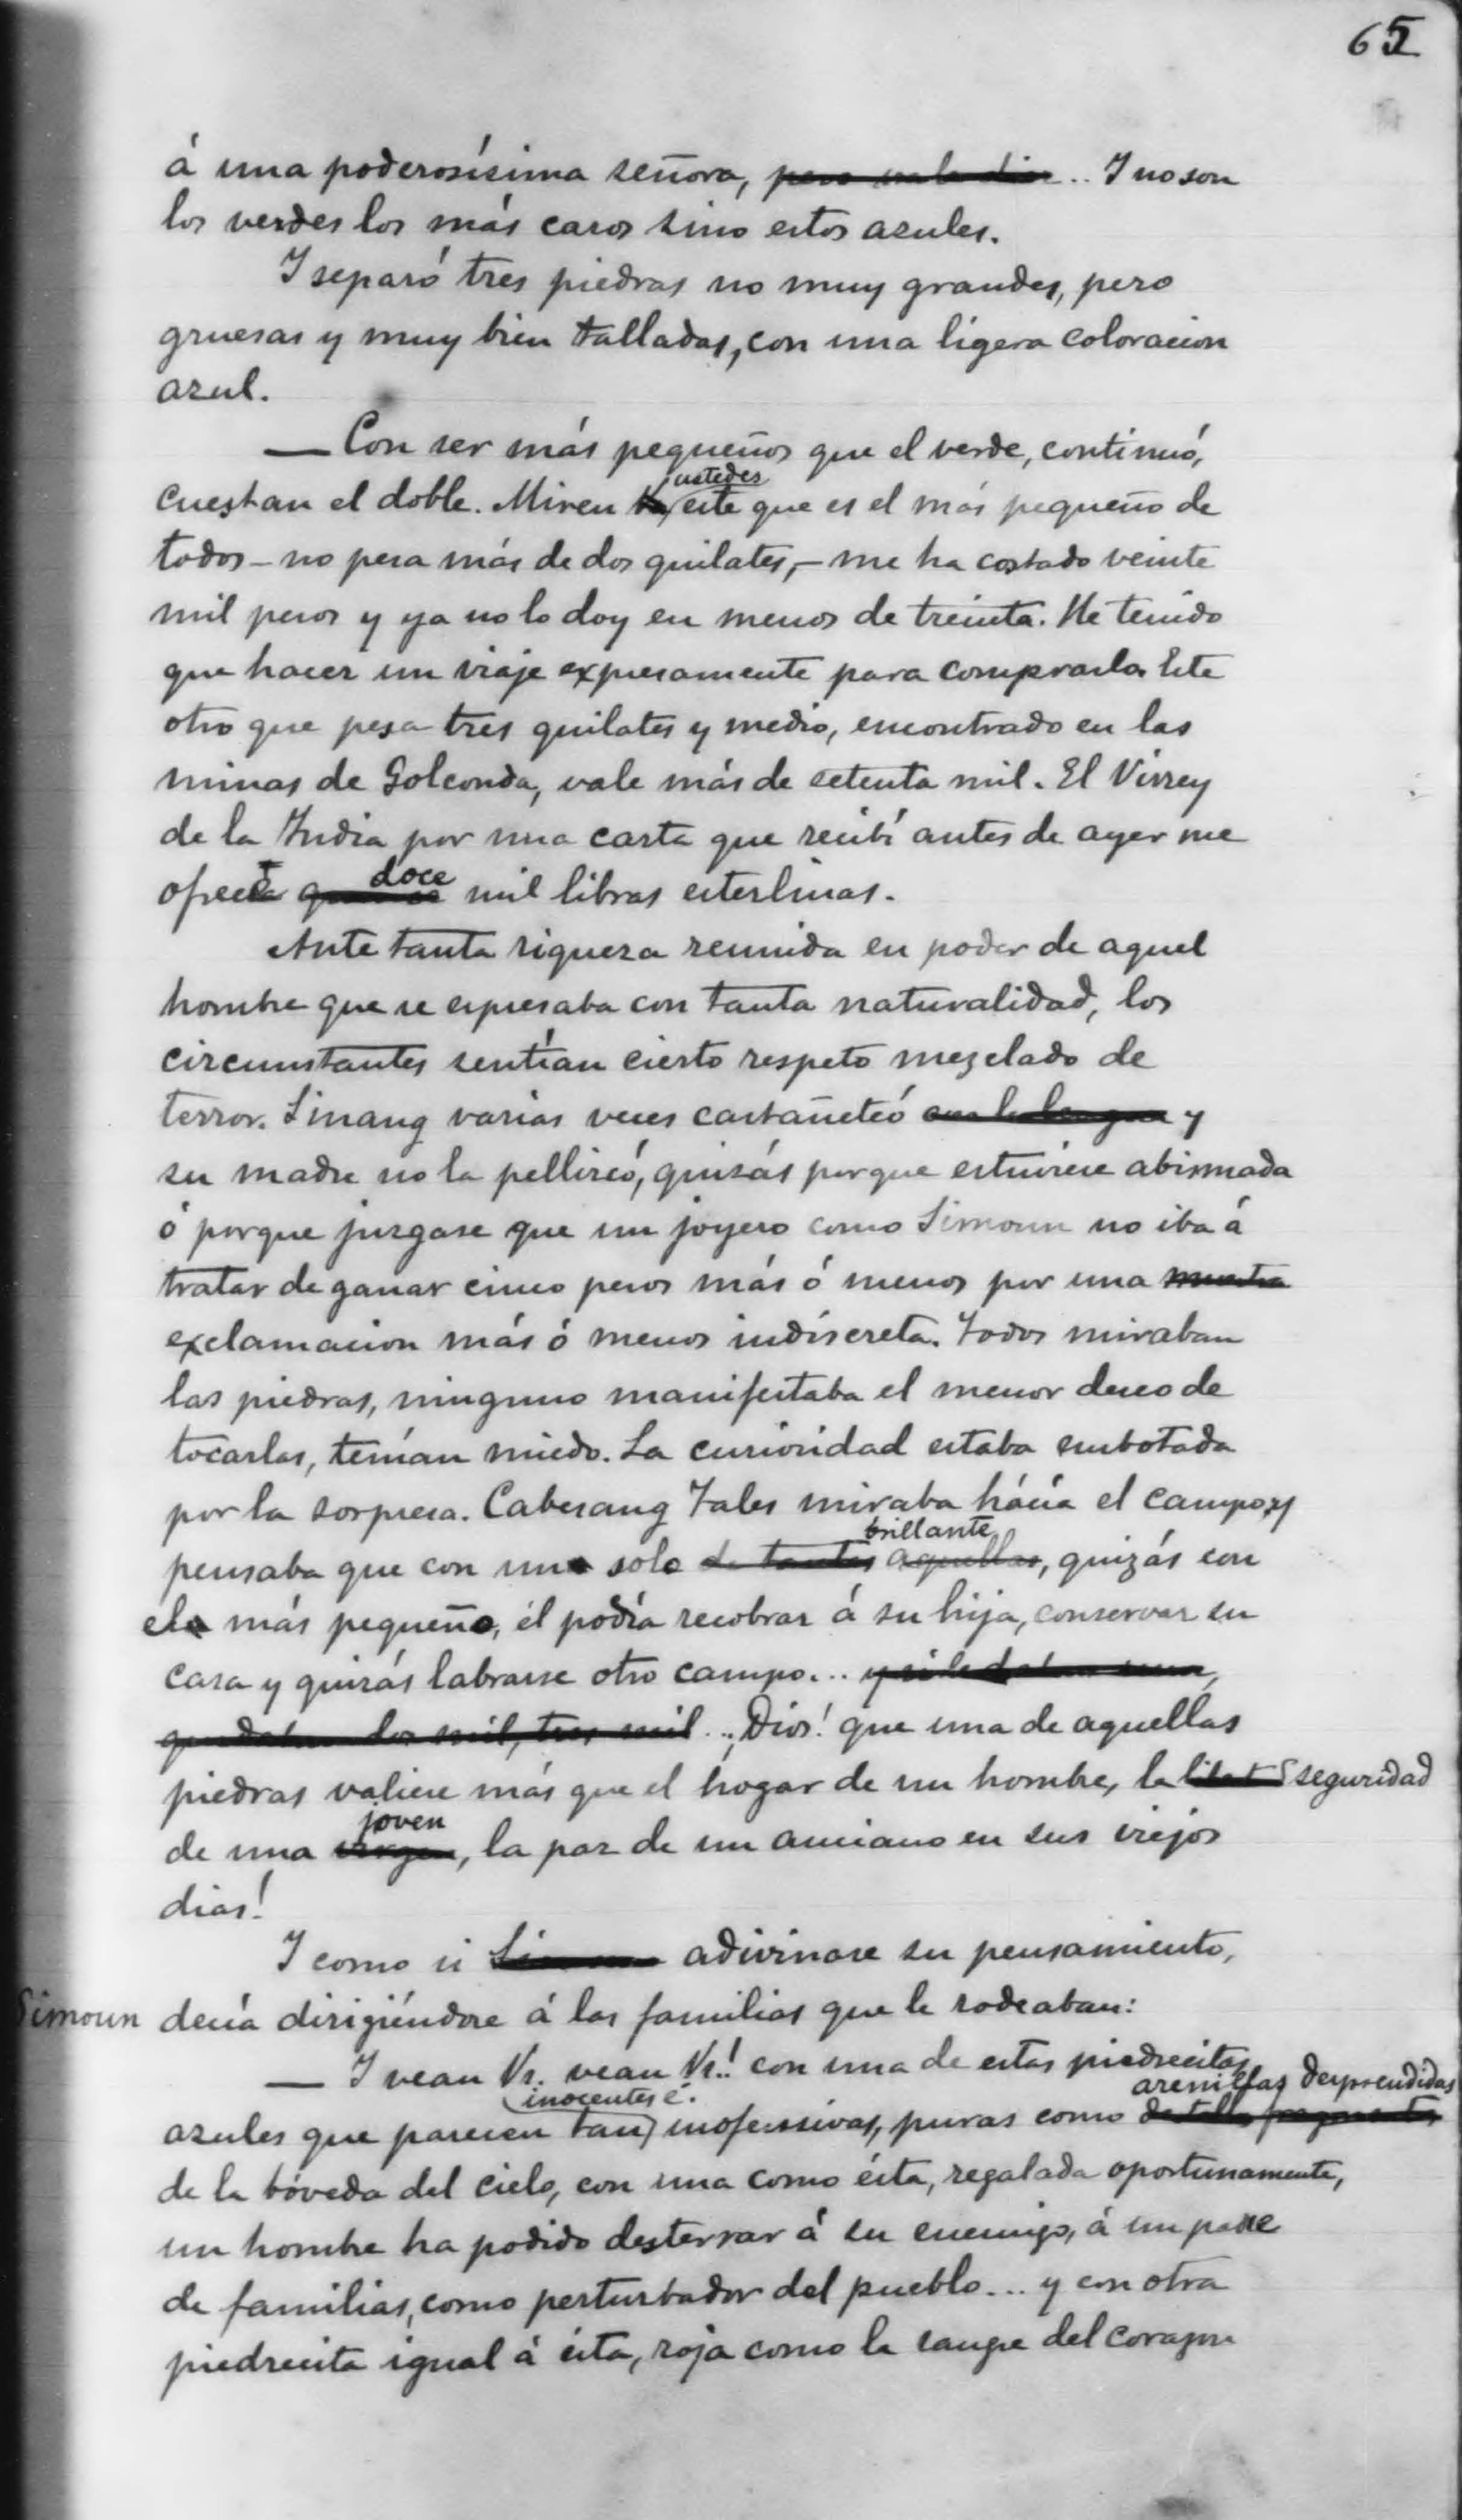 65
á una poderosísima señora, .. Y no son
los verdes los más caros sino estos azules.
Y separó tres piedras no muy grandes, pero
gruesas y muy bien talladas, con una ligera coloracion
azul.
— Con ser más pequeños que el verde, continuó,
ustedes
cuestan el doble. Miren este que es el más pequeño de
todos – no pesa más de dos quilates, – me ha costado veinte
mil pesos y ya no lo doy en menos de treinta. He tenido
que hacer un viaje expresamente para comprarlo. Este
otro que pesa tres quilates y medio, encontrado en las
minas de Golconda, vale más de setenta mil. El Virrey
de la India por una carta que recibí antes de ayer me
doce
ofrece mil libras esterlinas.
Ante tanta riqueza reunida en poder de aquel
hombre que se espresaba con tanta naturalidad, los
circunstantes sentían cierto respeto mezclado de
terror. Sinang varias veces castañeteó con la lengua y
su madre no la pellizcó, quizás porque estuviese abismada
ó porque juzgase que un joyero como Simoun no iba á
tratar de ganar cinco pesos más ó menos por una
exclamacion más ó menos indiscreta. Todos miraban
las piedras, ninguno manifestaba el menor deseo de
tocarlas, tenían miedo. La curiosidad estaba embotada
por la sorpresa. Cabesang Tales miraba hácia el campo, y
brillante
pensaba que con un solo de tantos aquellas, quizás con
el más pequeño, él podía recobrar á su hija, conservar su
casa y quizás labrarse otro campo... y si le daban una,
quedaban dos mil, tres mil... ¡Dios! que una de aquellas
piedras valiese más que el hogar de un hombre, la seguridad
joven
de una virgen, la paz de un anciano en sus viejos
dias!
Y como si Simoun adivinase su pensamiento,
Simoun decía dirigiéndose á las familias que le rodeaban:
— Y vean Vs. vean Vs.! con una de estas piedrecitas
inocentes é arenillas desprendidas
azules que parecen tan inofensivas, puras como fragmentos
de la bóveda del cielo, con una como ésta, regalada oportunamente,
un hombre ha podido desterrar á su enemigo, á un padre
de familias, como perturbador del pueblo... y con otra
piedrecita igual á ésta, roja como la sangre del corazon